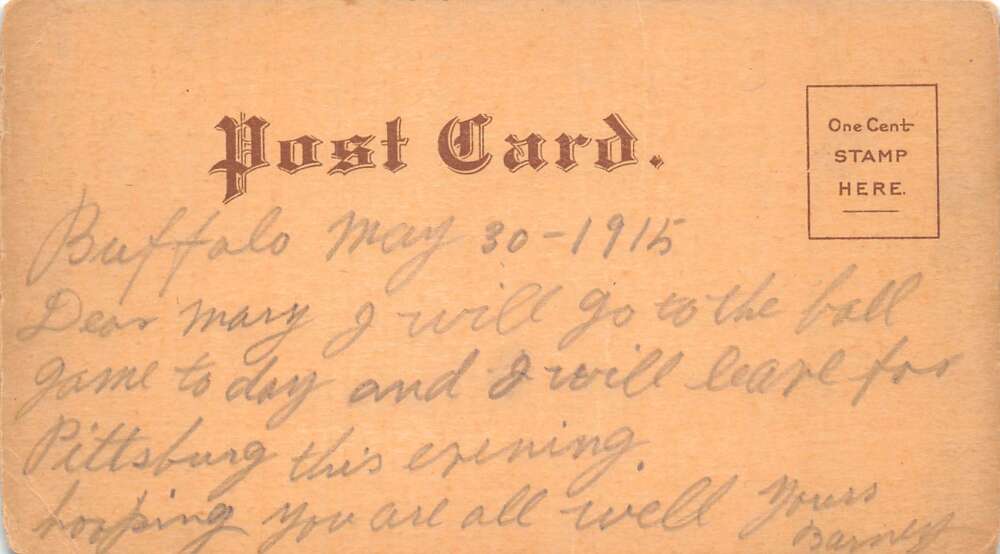 Post Card.
One Cent
STAMP
HERE.
Buffalo May 30-1915
Dear Mary I will go to the ball
game to day and I will leave for
Pittsburg this evening.
hooping you are all well Yours
Barney